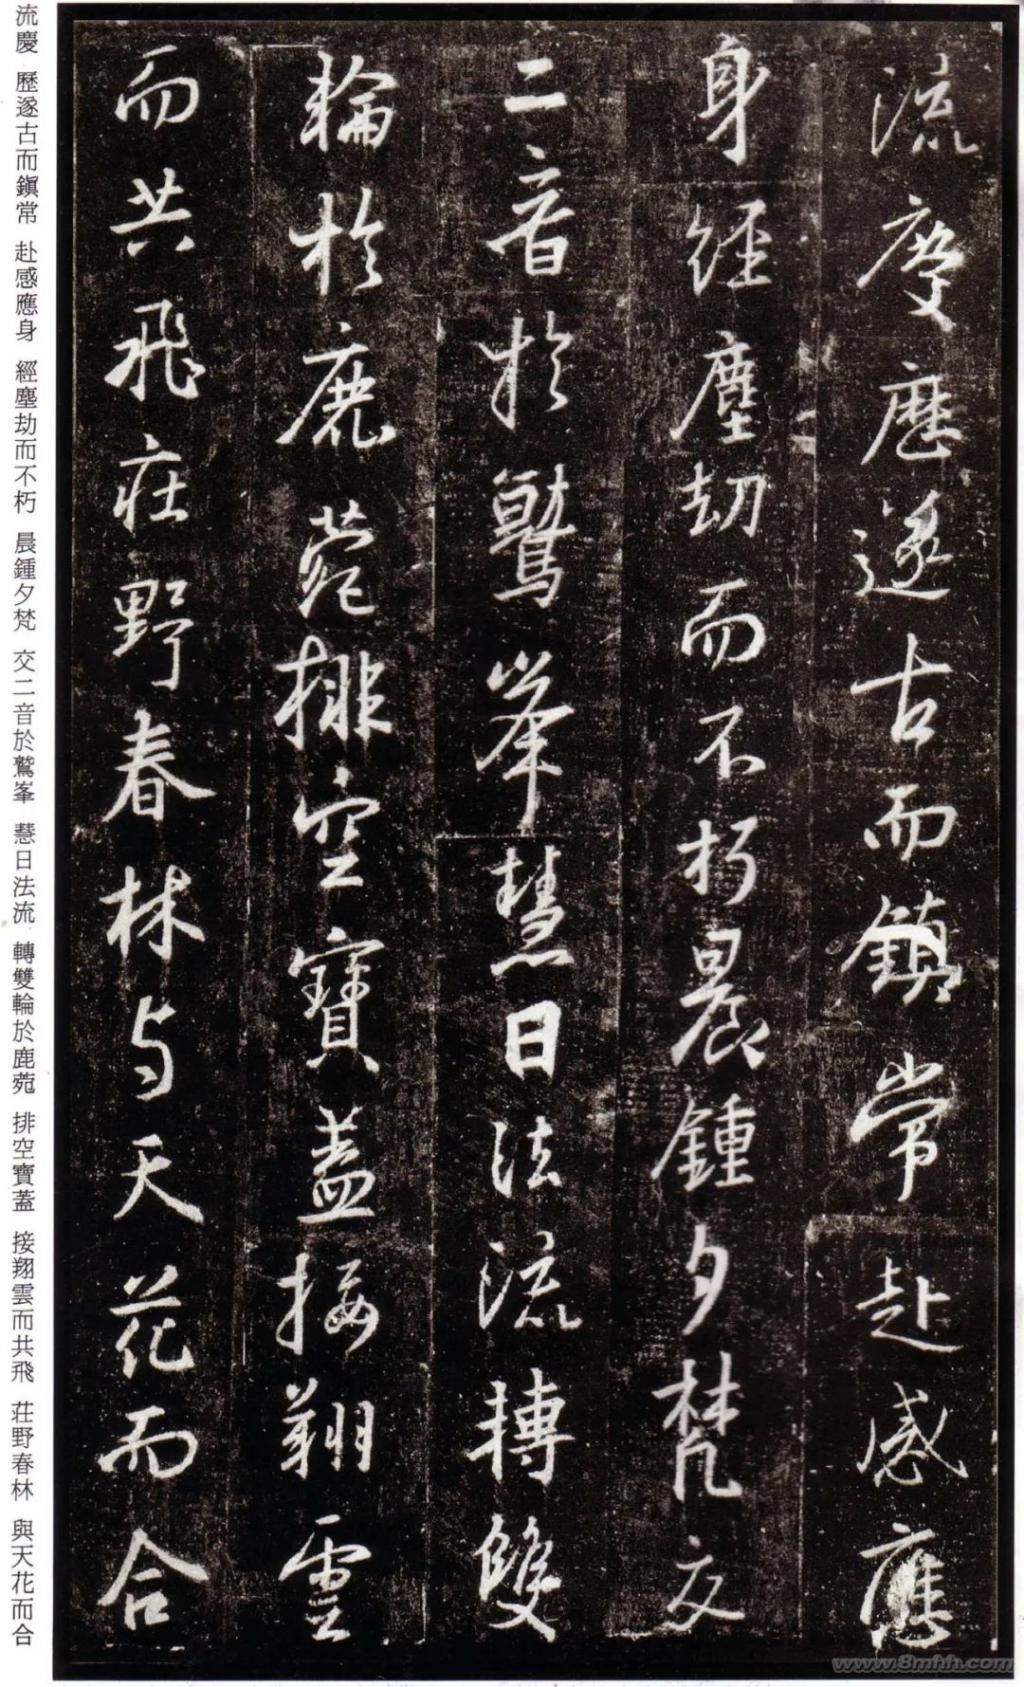 流慶歷遂古而鎮常赴感應
身經塵劫而不朽晨鍾夕梵交
二音於鷲峯慧日法流轉雙
輪於鹿菀排空寶蓋接翔雲
而共飛莊野春林与天花而合
流慶 歷遂古而鎭常 赴感應身 經塵劫而不朽 晨鍾夕梵 交二音於鷲峯 慧日法流 轉雙輪於鹿菀 排空寶蓋 接翔雲而共飛 莊野春林 與天花而合
www.8mhh.com